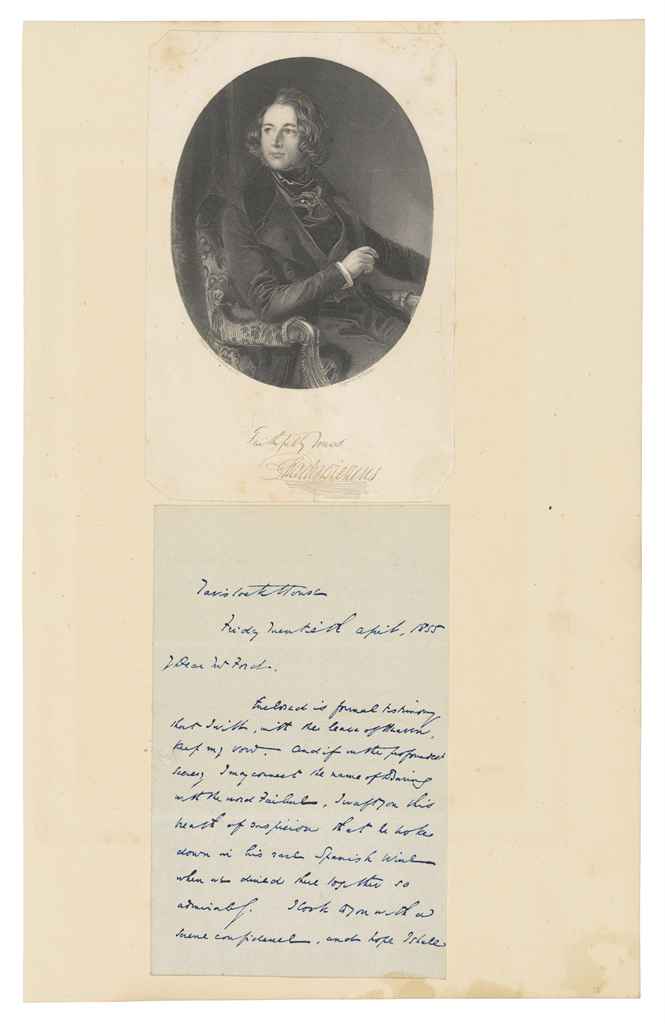 Faithfully Yours
Charles Dickens
Tavistock House
Friday Twentieth April, 1855
Dear Mr Ford.
Enclosed is formal testimony
that I will, with the leave of Heaven,
keep my vow. And if in the profoundest
secrecy I may connect the name of
with the word Failure, I waft you this
breath of suspicion that he broke
down in his rare Spanish Wine
when we dined there together so
admirably. I look to you with a
serene confidence, and hope I shall